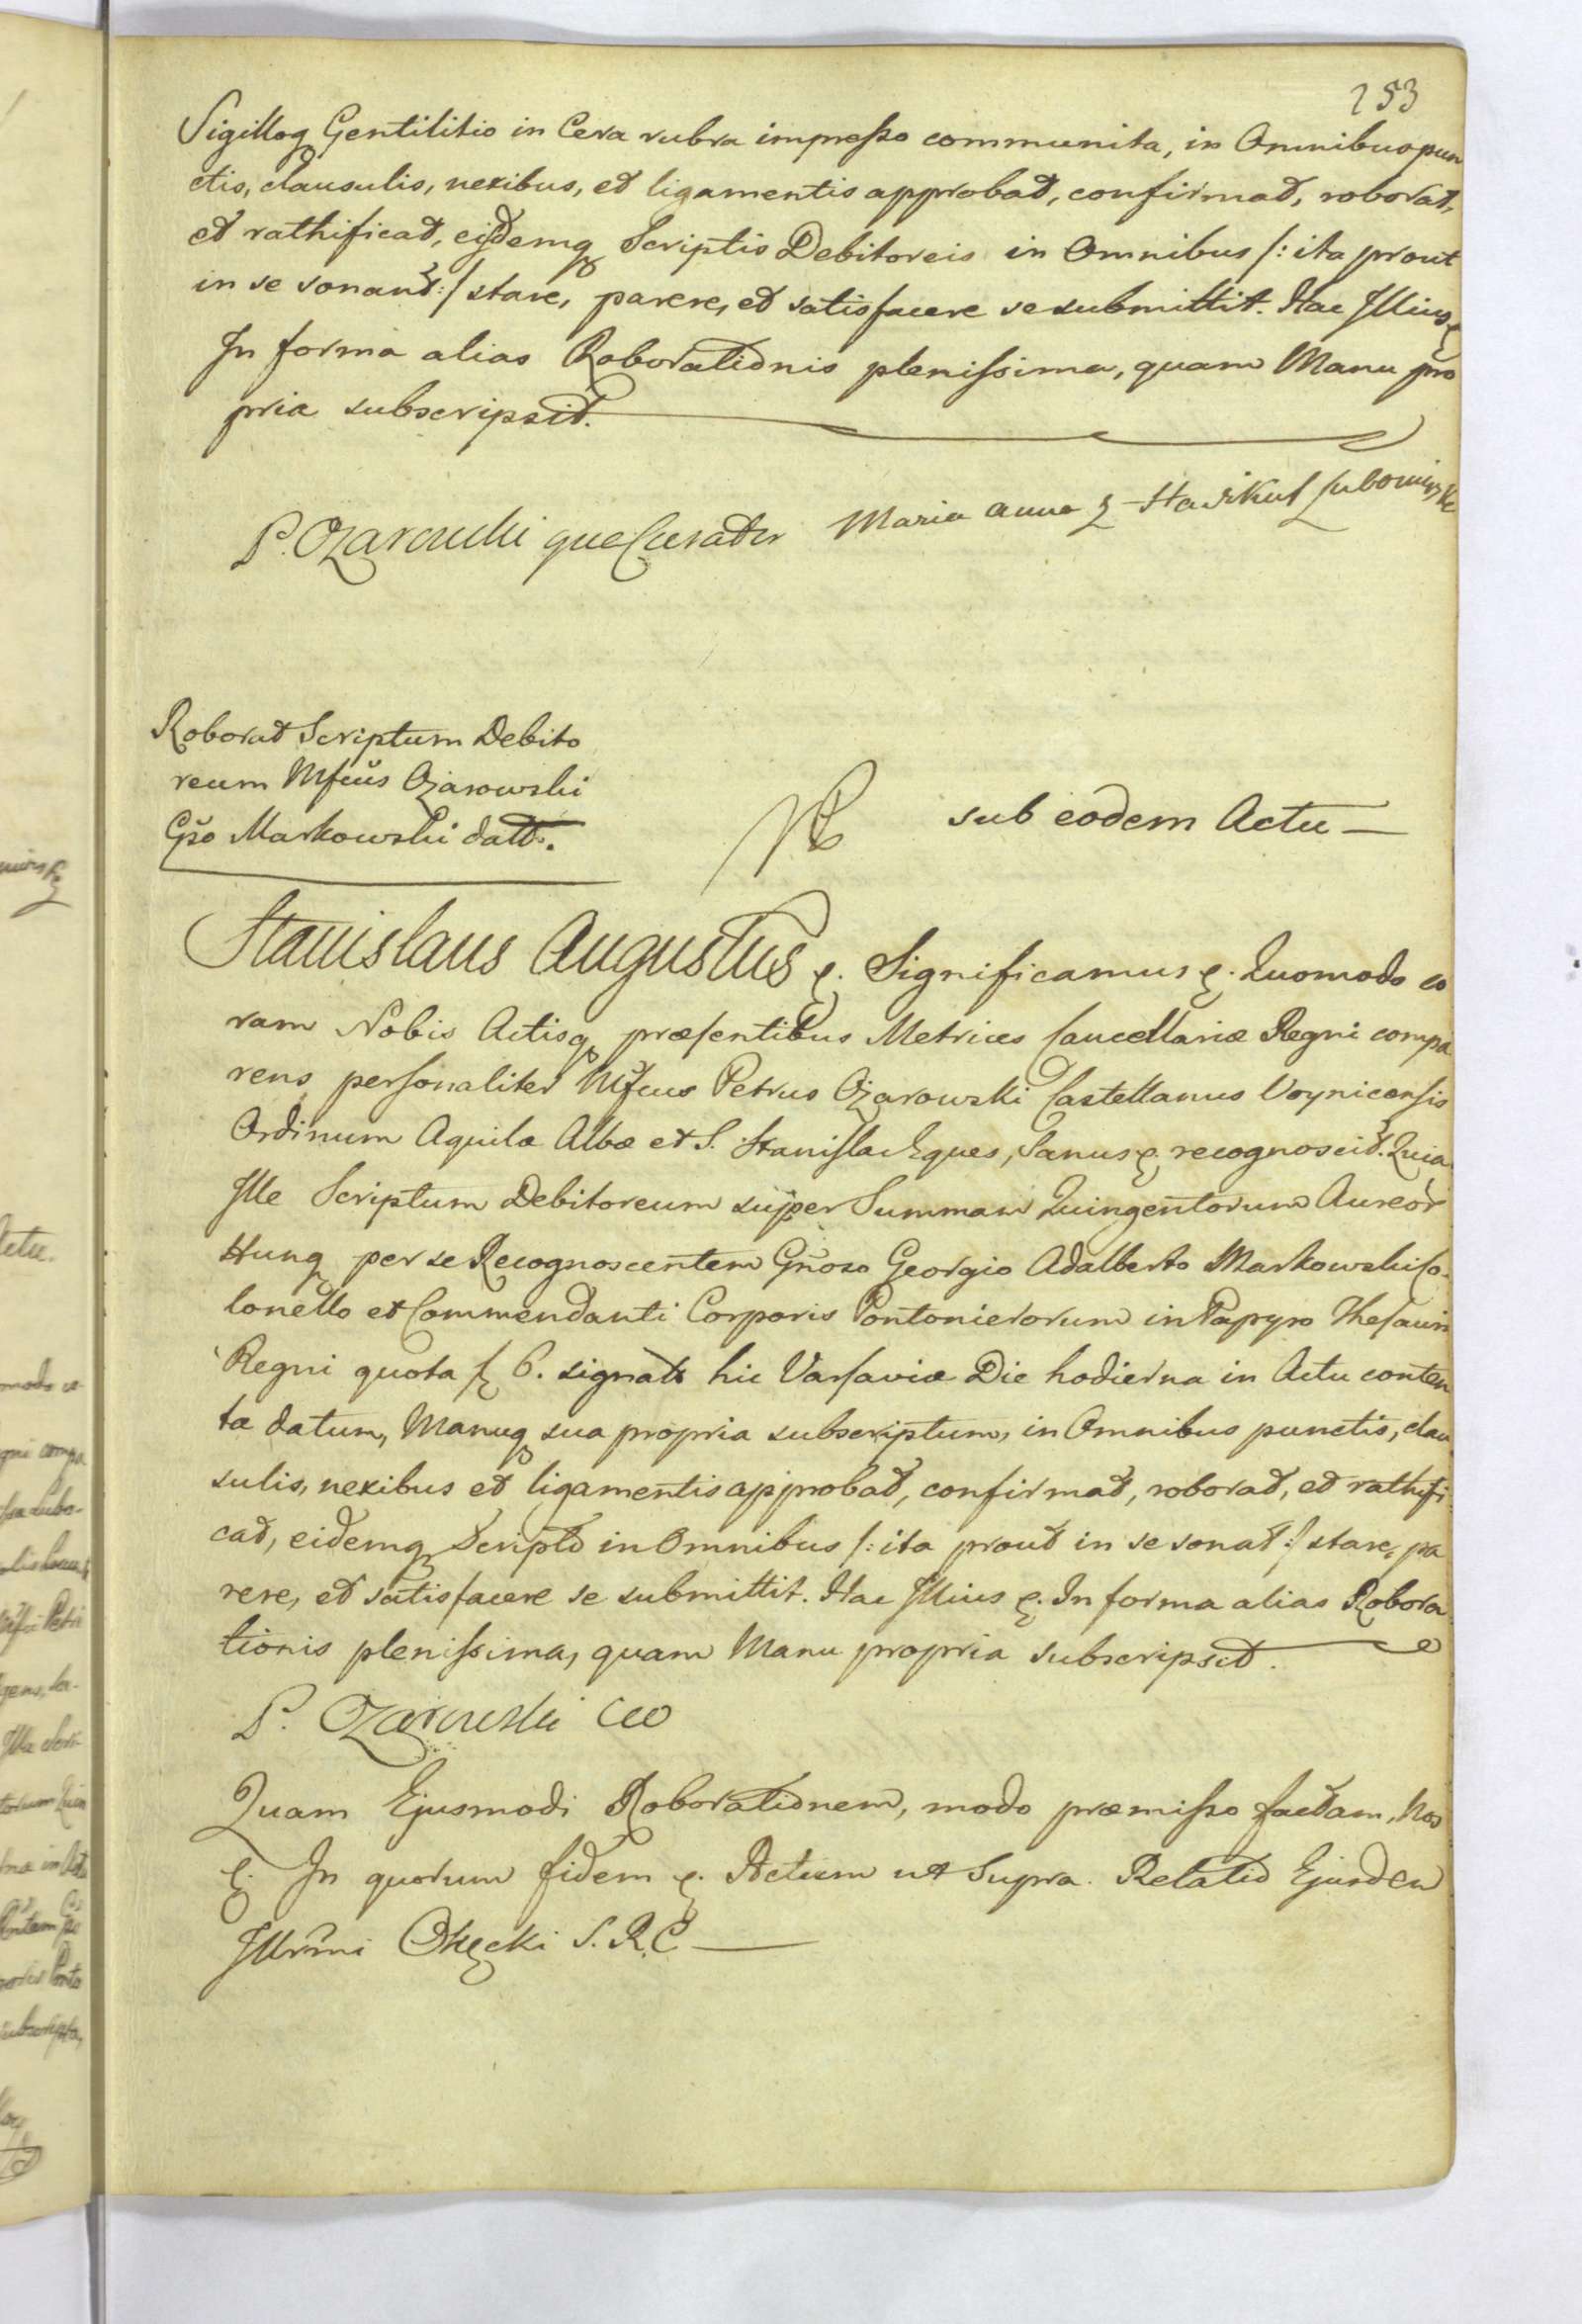 253
Sigilloq Gentilitio in Cera rubra impresso communita, in Omnibus pun
ctis, clausulis, nexibus, et ligamentis approbat, confirmat, roborat,
et rathificat, eisdemq Scriptis Debitoreis in Omnibus /: ita prout
in se sonant :/ stare, parere, et satisfacere se submittit. Hac Illius
In forma alias Roborationis plenissima, quam Manu pro
pria subscripsit.
P. Ożarowski qua Curator Maria Anna z Hadikuf Lubomirska
Roborat Scriptum Debito
reum Mfcus Ożarowski
Gso Markowski datt.
sub eodem Actu —
Stanislaus Augustus &. Significamus &. Quomodo co
ram Nobis Actisq præsentibus Metrices Cancellariæ Regni compa
rens personaliter Mfcus Petrus Ożarowski Castellanus Voynicensis
Ordinum Aquilæ Albæ et S. Stanislai Eques, Sanus &. recognoscit. Quia
Ille Scriptum Debitoreum super Summam Quingentorum Aureor
Hung per se Recognoscentem Gnoso Georgio Adalberto Markowski Co-
lonello et Commendanti Corporis Pontonierorum in Papyro Thesauri
Regni quota f 6. signatæ hic Varsaviæ Die hodierna in Actu conten
ta datum, Manuq sua propria subscriptum, in Omnibus punctis, clau
sulis, nexibus et ligamentis approbat, confirmat, roborat, et rathifi
cat, eidemq Scripto in Omnibus /: ita prout in se sonat :/ stare, pa
rere, et satisfacere se submittit. Hac Illius &. In forma alias Robora
tionis plenissima, quam Manu propria subscripsit.
P. Ożarowski CW
Quam Ejusmodi Roborationem, modo præmisso factam, Nos
&. In quorum fidem &. Actum ut Supra. Relatio Ejusdem
Illrmi Okęcki S. R. C —